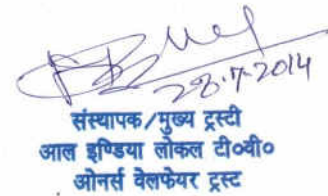 28.7-2014
संस्थापक/मुख्य ट्रस्टी
आल इण्डिया लोकल टी०वी०
ओनर्स वेलफेयर ट्रस्ट